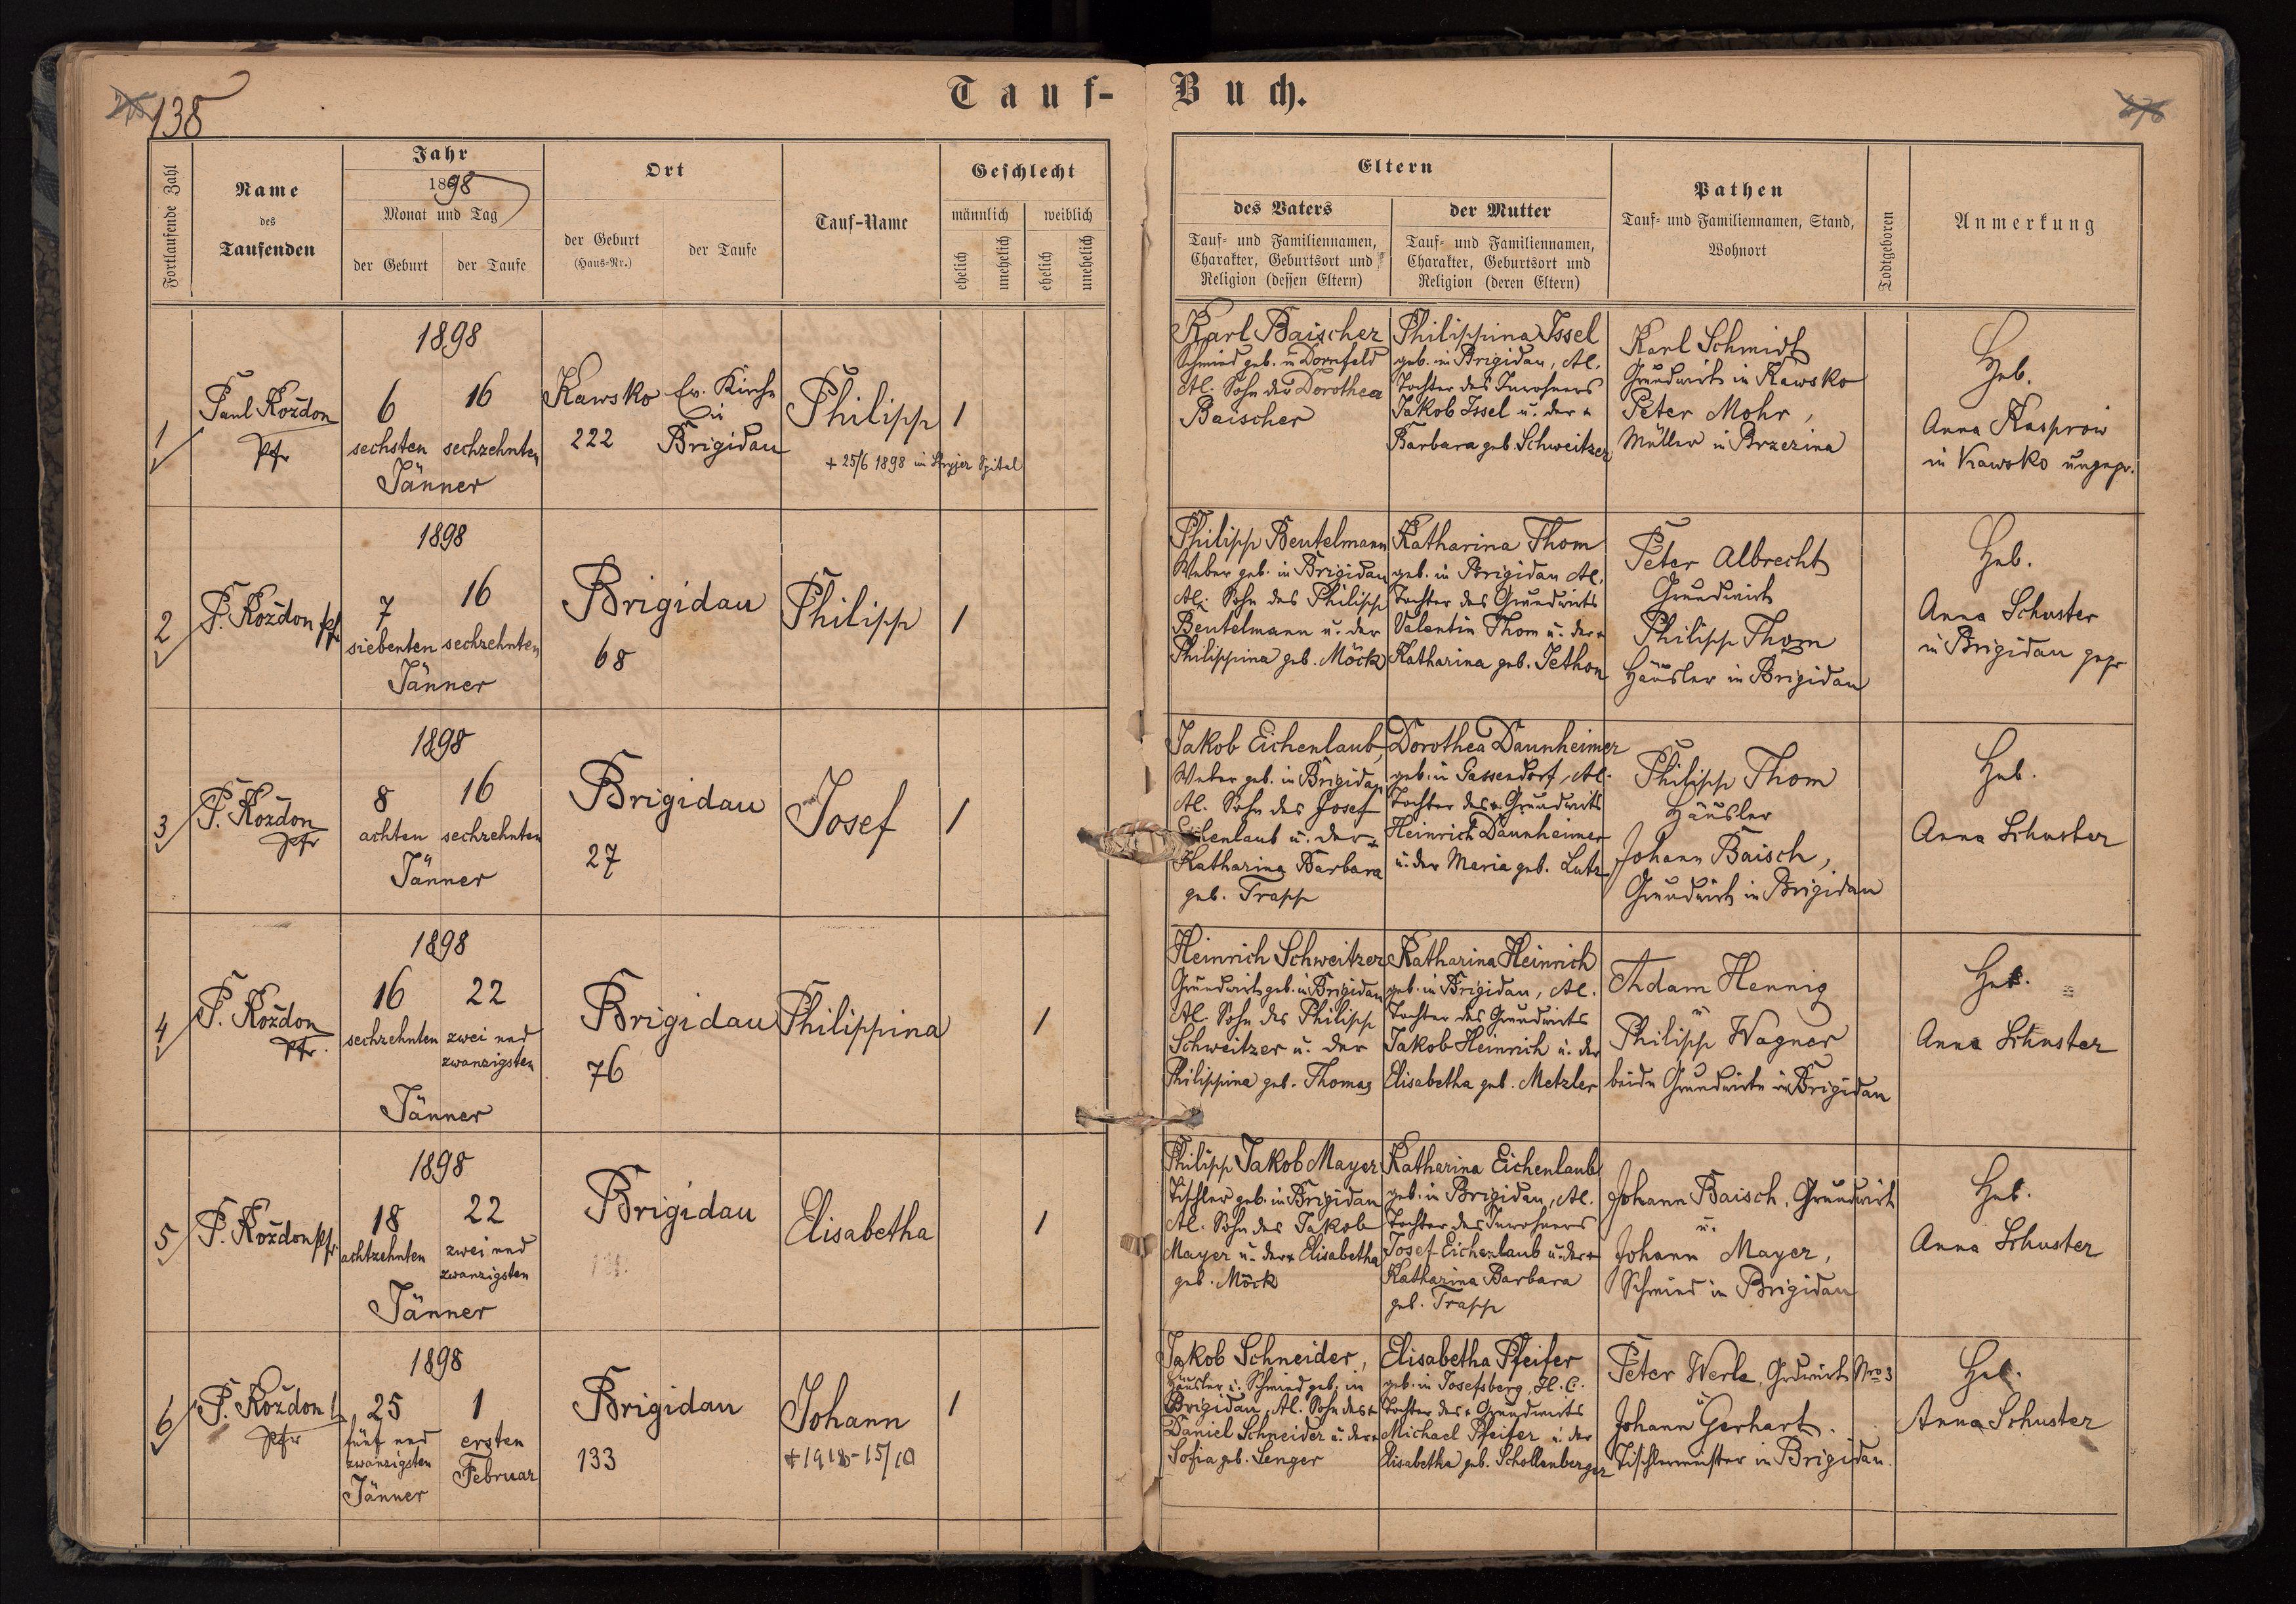 138
Tauf-Buch.
Fortlaufende Zahl
Name
des
Taufenden
Jahr
1898
Monat und Tag
der Geburt
der Taufe
Ort
der Geburt
(Haus-Nr.)
der Taufe
Tauf-Name
Geschlecht
männlich
weiblich
ehelich
unehelich
ehelich
unehelich
Eltern
des Vaters
Tauf- und Familiennamen,
Charakter, Geburtsort und
Religion (dessen Eltern)
der Mutter
Tauf- und Familiennamen,
Charakter, Geburtsort und
Religion (deren Eltern)
Pathen
Tauf- und Familiennamen, Stand,
Wohnort
Todtgeboren
Anmerkung
1
Paul Koždon
Pfr
1898
6
sechsten
16
sechzehnten
Jänner
Kawsko
222
Ev. Kirche
in
Brigidau
Philipp
+ 25/6 1898 im Stryjer Spital
1
Karl Baischer
Schmied geb. in Dornfeld
Al. Sohn der Dorothea
Baischer
Philippina Issel
geb. in Brigidau, Al.
Tochter des Inwohners
Jakob Issel u. der +
Barbara geb. Schweitzer
Karl Schmidt
Grundwirt in Kawsko
Peter Mohr,
Müller in Brzezina
Heb.
Anna Kasprow
in Kawsko ungepr.
2
P. Koždon pfr
1898
7
siebenten
16
sechzehnten
Jänner
Brigidau
68
Philipp
1
Philipp Beutelmann
Weber geb. in Brigidau
Al. Sohn des Philipp
Beutelmann u. der
Philippina geb. Möck
Katharina Thom
geb. in Brigidau Al.
Tochter des Grundwirts
Valentin Thom u. der +
Katharina geb. Jethon
Peter Albrecht
Grundwirt
Philipp Thom
Häusler in Brigidau
Heb.
Anna Schuster
in Brigidau gepr
3
P. Koždon
pfr
1898
8
achten
16
sechzehnten
Jänner
Brigidau
27
Josef
1
Jakob Eichenlaub,
Weber geb. in Brigidau
Al. Sohn des Josef
Eichenlaub u. der +
Katharina Barbara
geb. Trapp
Dorothea Daunheimer
geb. in Gassendorf, Al.
Tochter des + Grundwirts
Heinrich Daunheimer
u. der Maria geb. Lutz
Philipp Thom
Häusler
Johann Baisch,
Grundwirt in Brigidau
Heb.
Anna Schuster
4
P. Koždon
Pfr.
1898
16
sechzehnten
22
zwei und
zwanzigsten
Jänner
Brigidau
76
Philippina
1
Heinrich Schweitzer
Grundwirt geb. in Brigidau
Al. Sohn des Philipp
Schweitzer u. der
Philippina geb. Thomas
Katharina Heinrich
geb. in Brigidau, Al.
Tochter des Grundwirts
Jakob Heinrich u. der
Elisabetha geb. Metzler
Adam Hennig
u
Philipp Wagner
beide Grundwirte in Brigidau
Heb.
Anna Schuster
5
P. Koždon pfr.
1898
18
achtzehnten
22
zwei und
zwanzigsten
Jänner
Brigidau
Elisabetha
1
Philipp Jakob Mayer
Tischler geb. in Brigidau
Al. Sohn des Jakob
Mayer u. der + Elisabetha
geb. Möck
Katharina Eichenlaub
geb. in Brigidau, Al.
Tochter des Inwohners
Josef Eichenlaub u. der +
Katharina Barbara
geb. Trapp
Johann Baisch, Grundwirt
u.
Johann Mayer,
Schmied in Brigidau
Heb.
Anna Schuster
6
P. Koždon
pfr
1898
25
fünf und
zwanzigsten
Jänner
1
ersten
Februar
Brigidau
133
Johann
+ 1918 - 15/10
1
Jakob Schneider,
Häusler u. Schmied geb. in
Brigidau, Al. Sohn des +
Daniel Schneider u. der +
Sofia geb. Senger
Elisabetha Pfeifer
geb. in Josefsberg, H. C.
Tochter des + Grundwirts
Michael Pfeifer u. der
Elisabetha geb. Schollenberger
Peter Werle, Grdwirt Nro 3
u
Johann Gerhart.
Tischlermeister in Brigidau.
Heb.
Anna Schuster